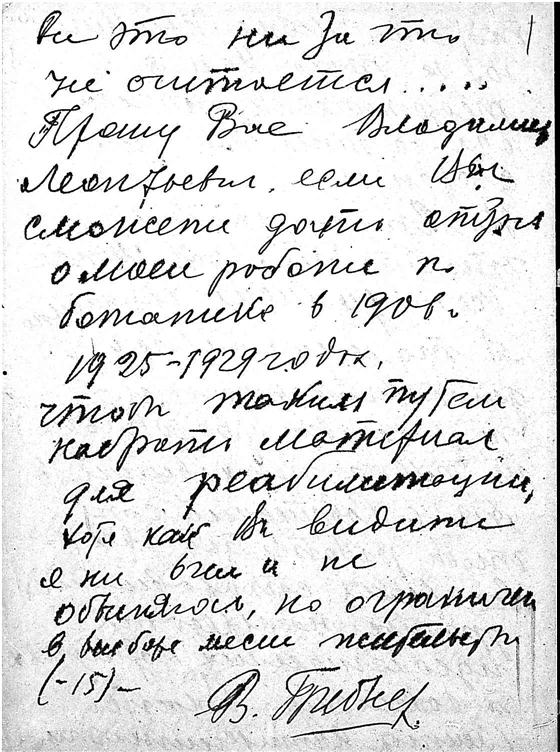 Вы это ни за что
не считается.....
Прошу Вас Владимир
Леонтьевич, если Вы
сможете дать отзыв
о моей работе по
ботанике в 1908.
1925-1929 годах,
чтобы таким путем
набрать материал
для реабилитации,
хотя как Вы видите
я ни в чем и не
обвинялась, но ограничен
в выборе места жительства
(-15)-
В.